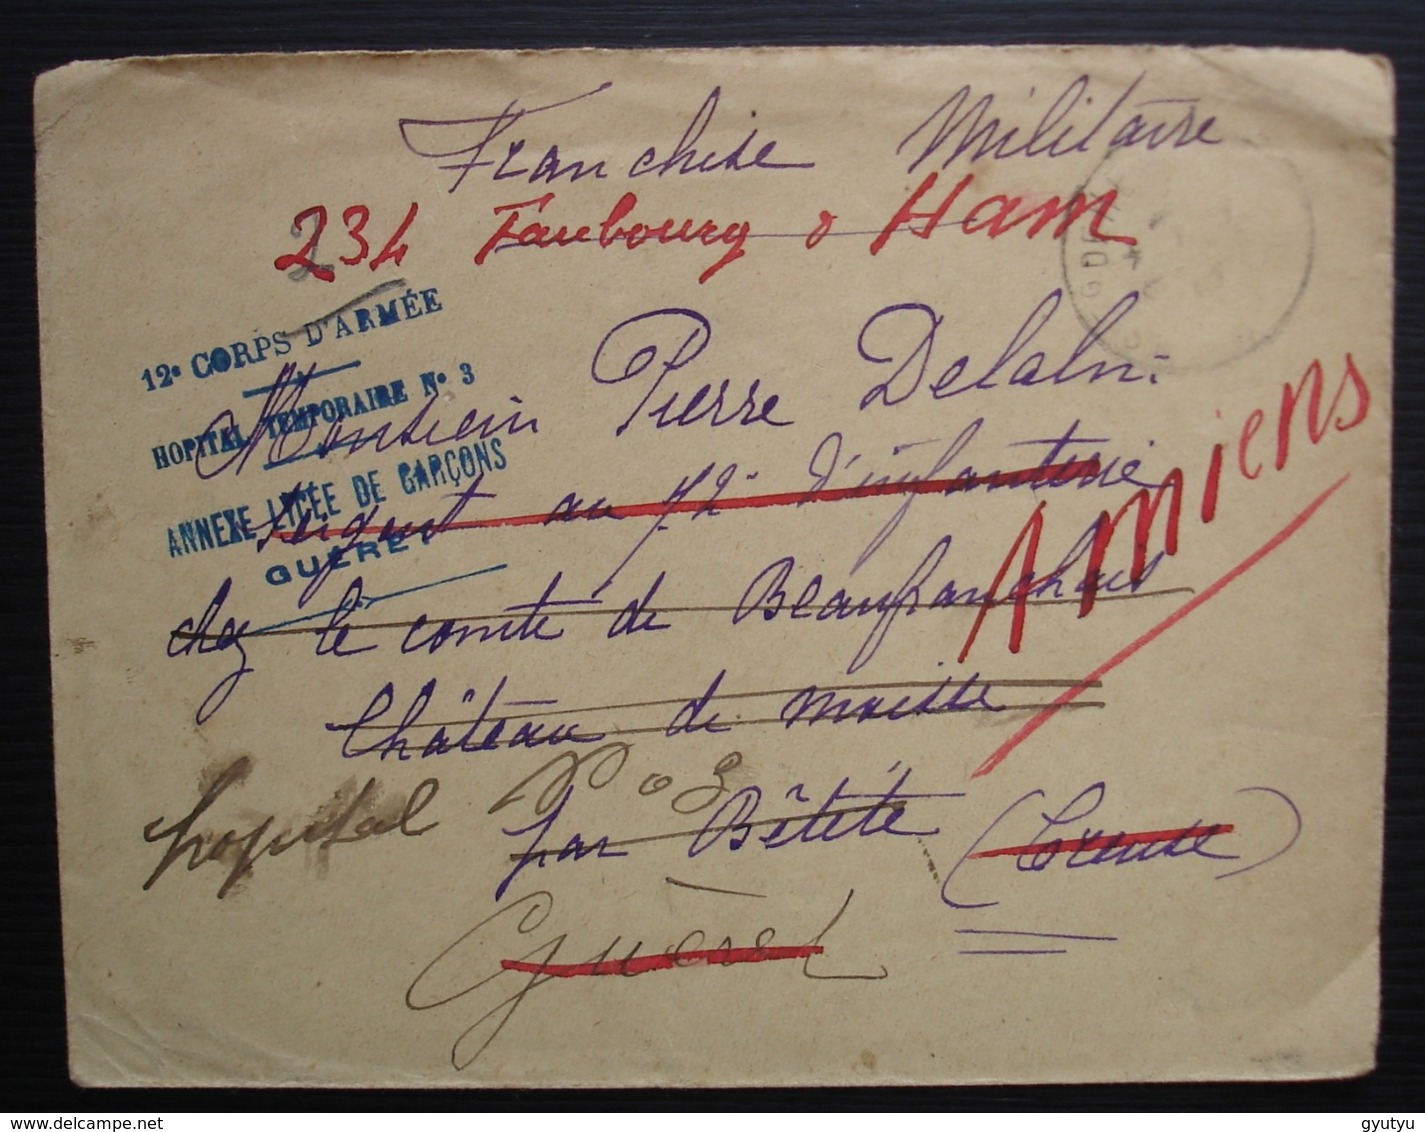 Franchise Militaire
234 Faubourg d Ham
12e CORPS D'ARMÉE
HOPITAL TEMPORAIRE No 3
ANNEXE LYCÉE DE GARÇONS
GUÉRET
Monsieur Pierre
Sergent au 72e d'infanterie
Amiens
chez le comte de Beaufranchais
Château de moisse
hopital No 3
par Bétête (Creuse)
Guéret
delcampe.net
gyutyu